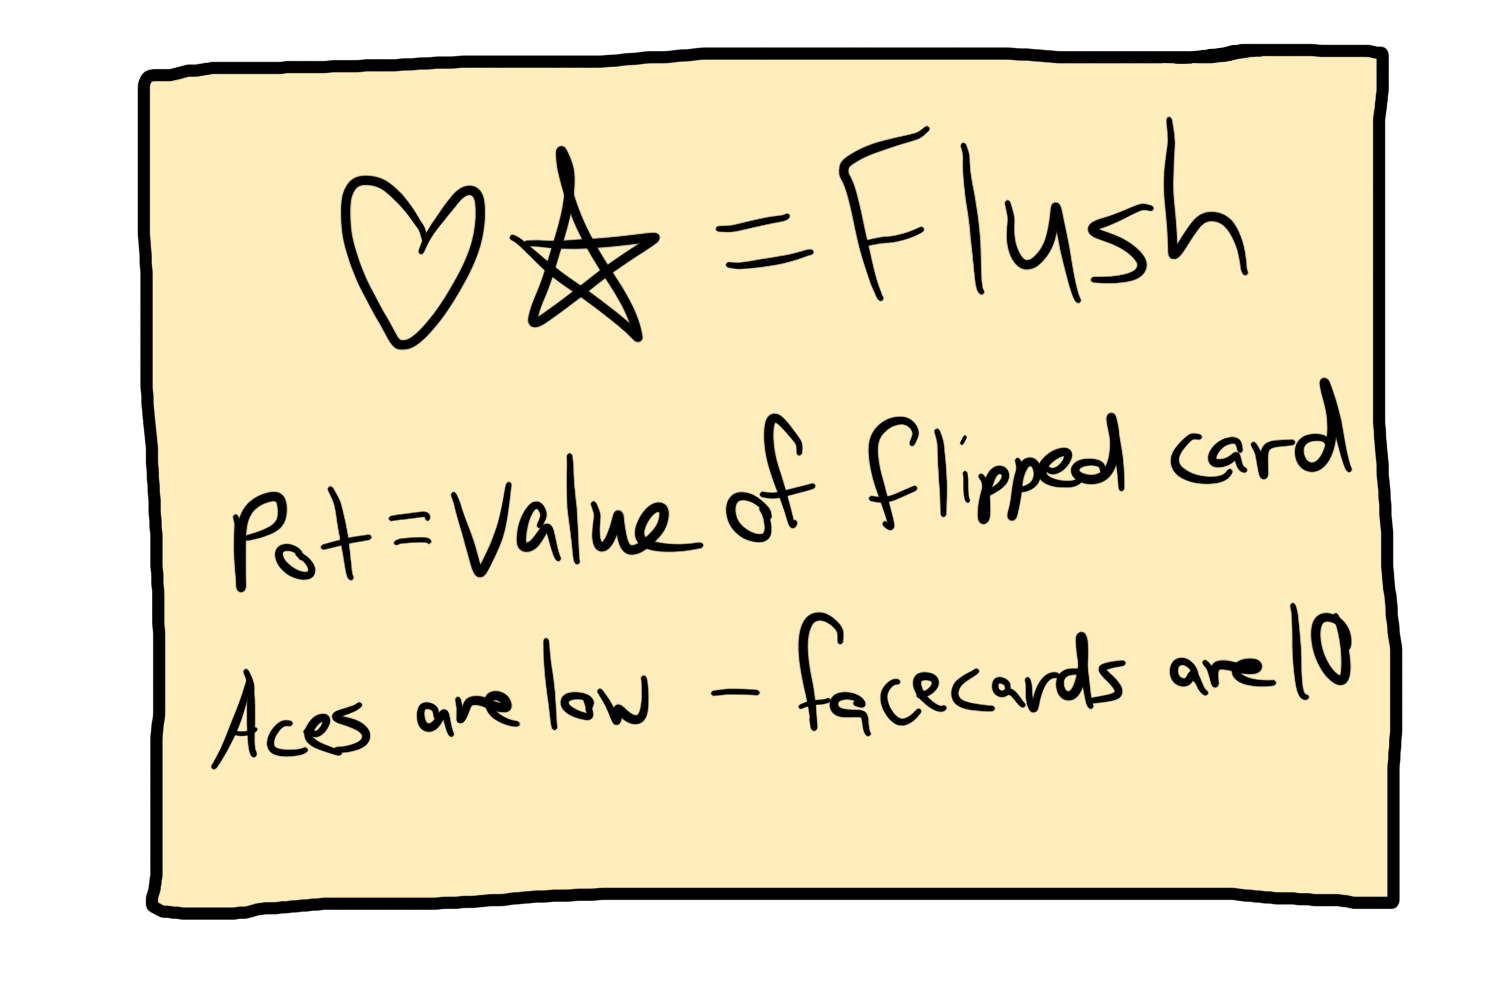 ♡☆ = Flush
Pot = Value of flipped card
Aces are low - facecards are 10